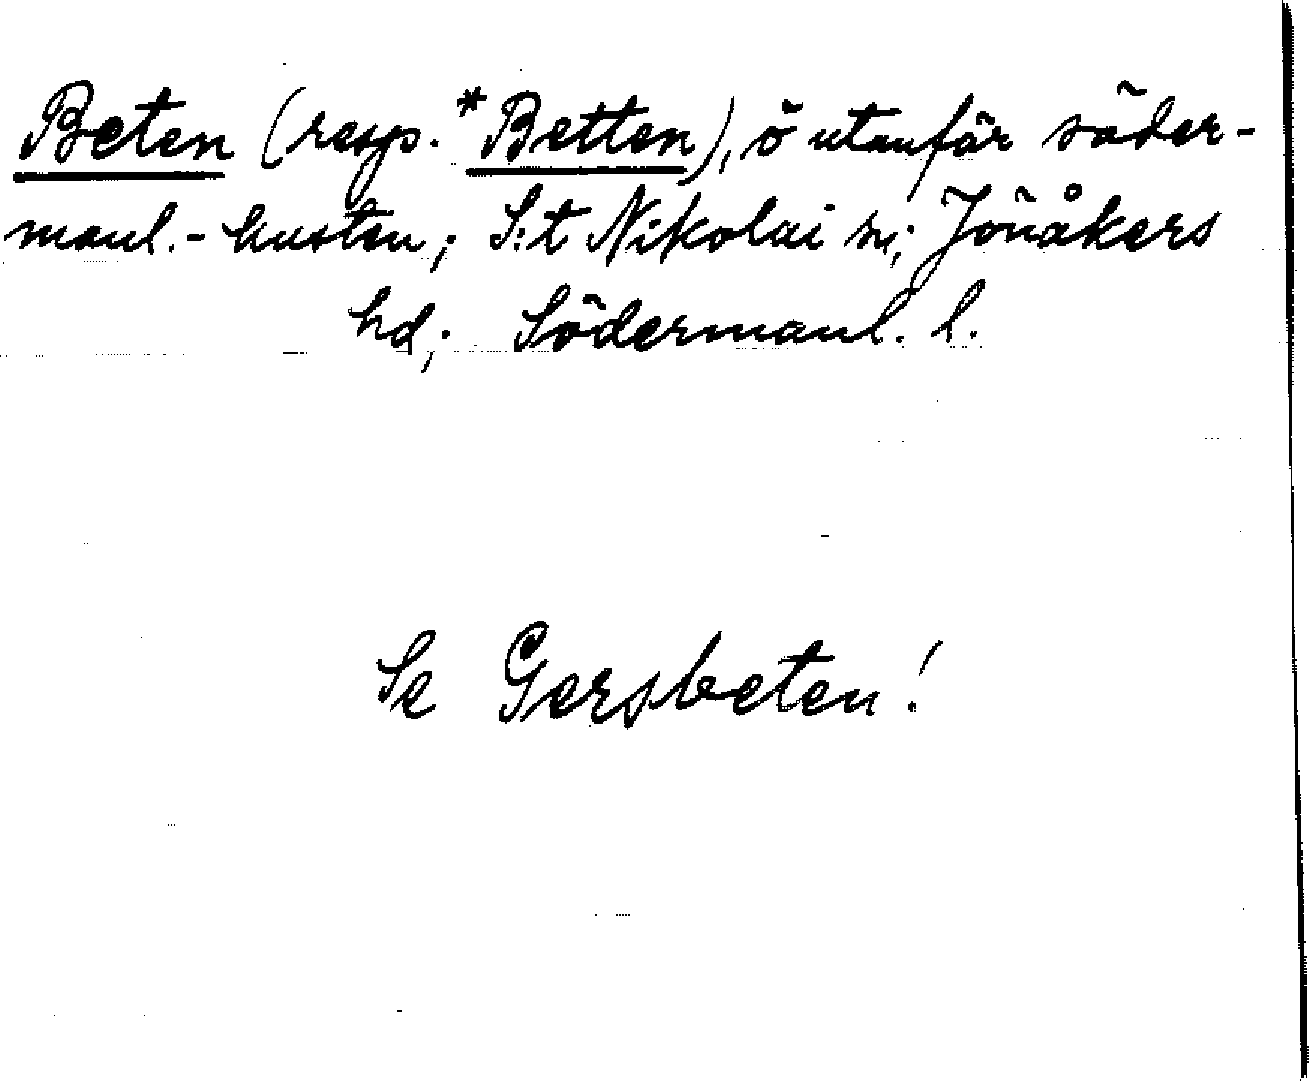 Beten (resp. *Betten), ö utanför söder-
manl.-kusten; S:t Nikolai sn; Jönåkers
hd; Södermanl. l.
Se Gersbeten!